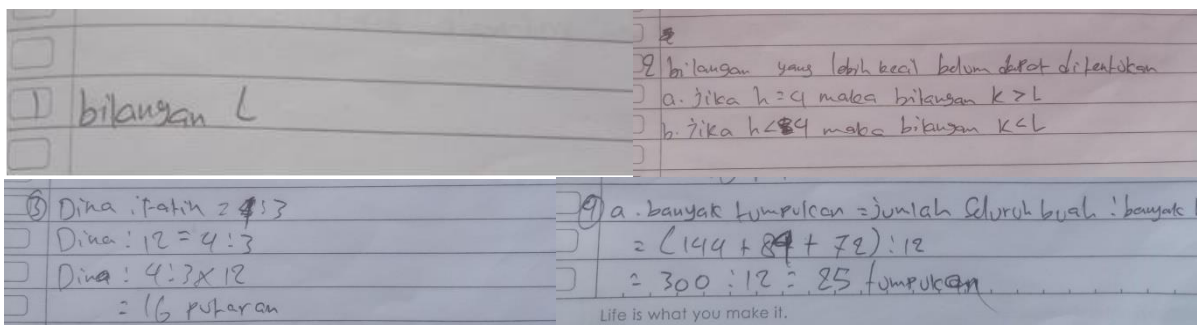 1 bilangan L
2 bilangan yang lebih kecil belum dapat ditentukan
a. jika h = 4 maka bilangan K > L
b. jika h < 4 maka bilangan K < L
③ Dina : Fatin = 4 : 3
Dina : 12 = 4 : 3
Dina : 4 : 3 x 12
= 16 putaran
④ a. banyak tumpukan = jumlah seluruh buah : banyak
= (144 + 84 + 72) : 12
= 300 : 12 = 25 tumpukan
Life is what you make it.